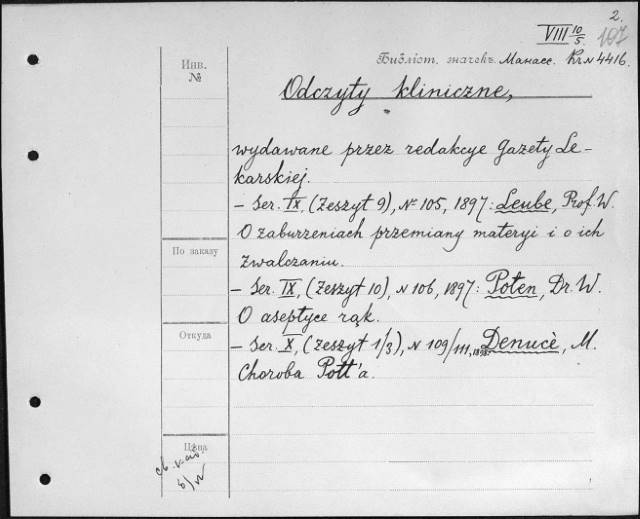 2.
VIII 10/5 107
Инв. №
Библіот. значекъ. Манасс. Kr N 4416.
Odczyty kliniczne,
wydawane przez redakcye Gazety Le-
karskiej.
- Ser. IX, (Zeszyt 9), № 105, 1897: Leube, Prof. W.
O zaburzeniach przemiany materyi i o ich
zwalczaniu.
По заказу
- Ser. IX, (Zeszyt 10), N 106, 1897: Poten, Dr. W.
O aseptyce rąk.
Откуда
- Ser. X, (Zeszyt 1/3), N 109/111, 1898: Denucè, M.
Choroba Pott'a.
Цѣна